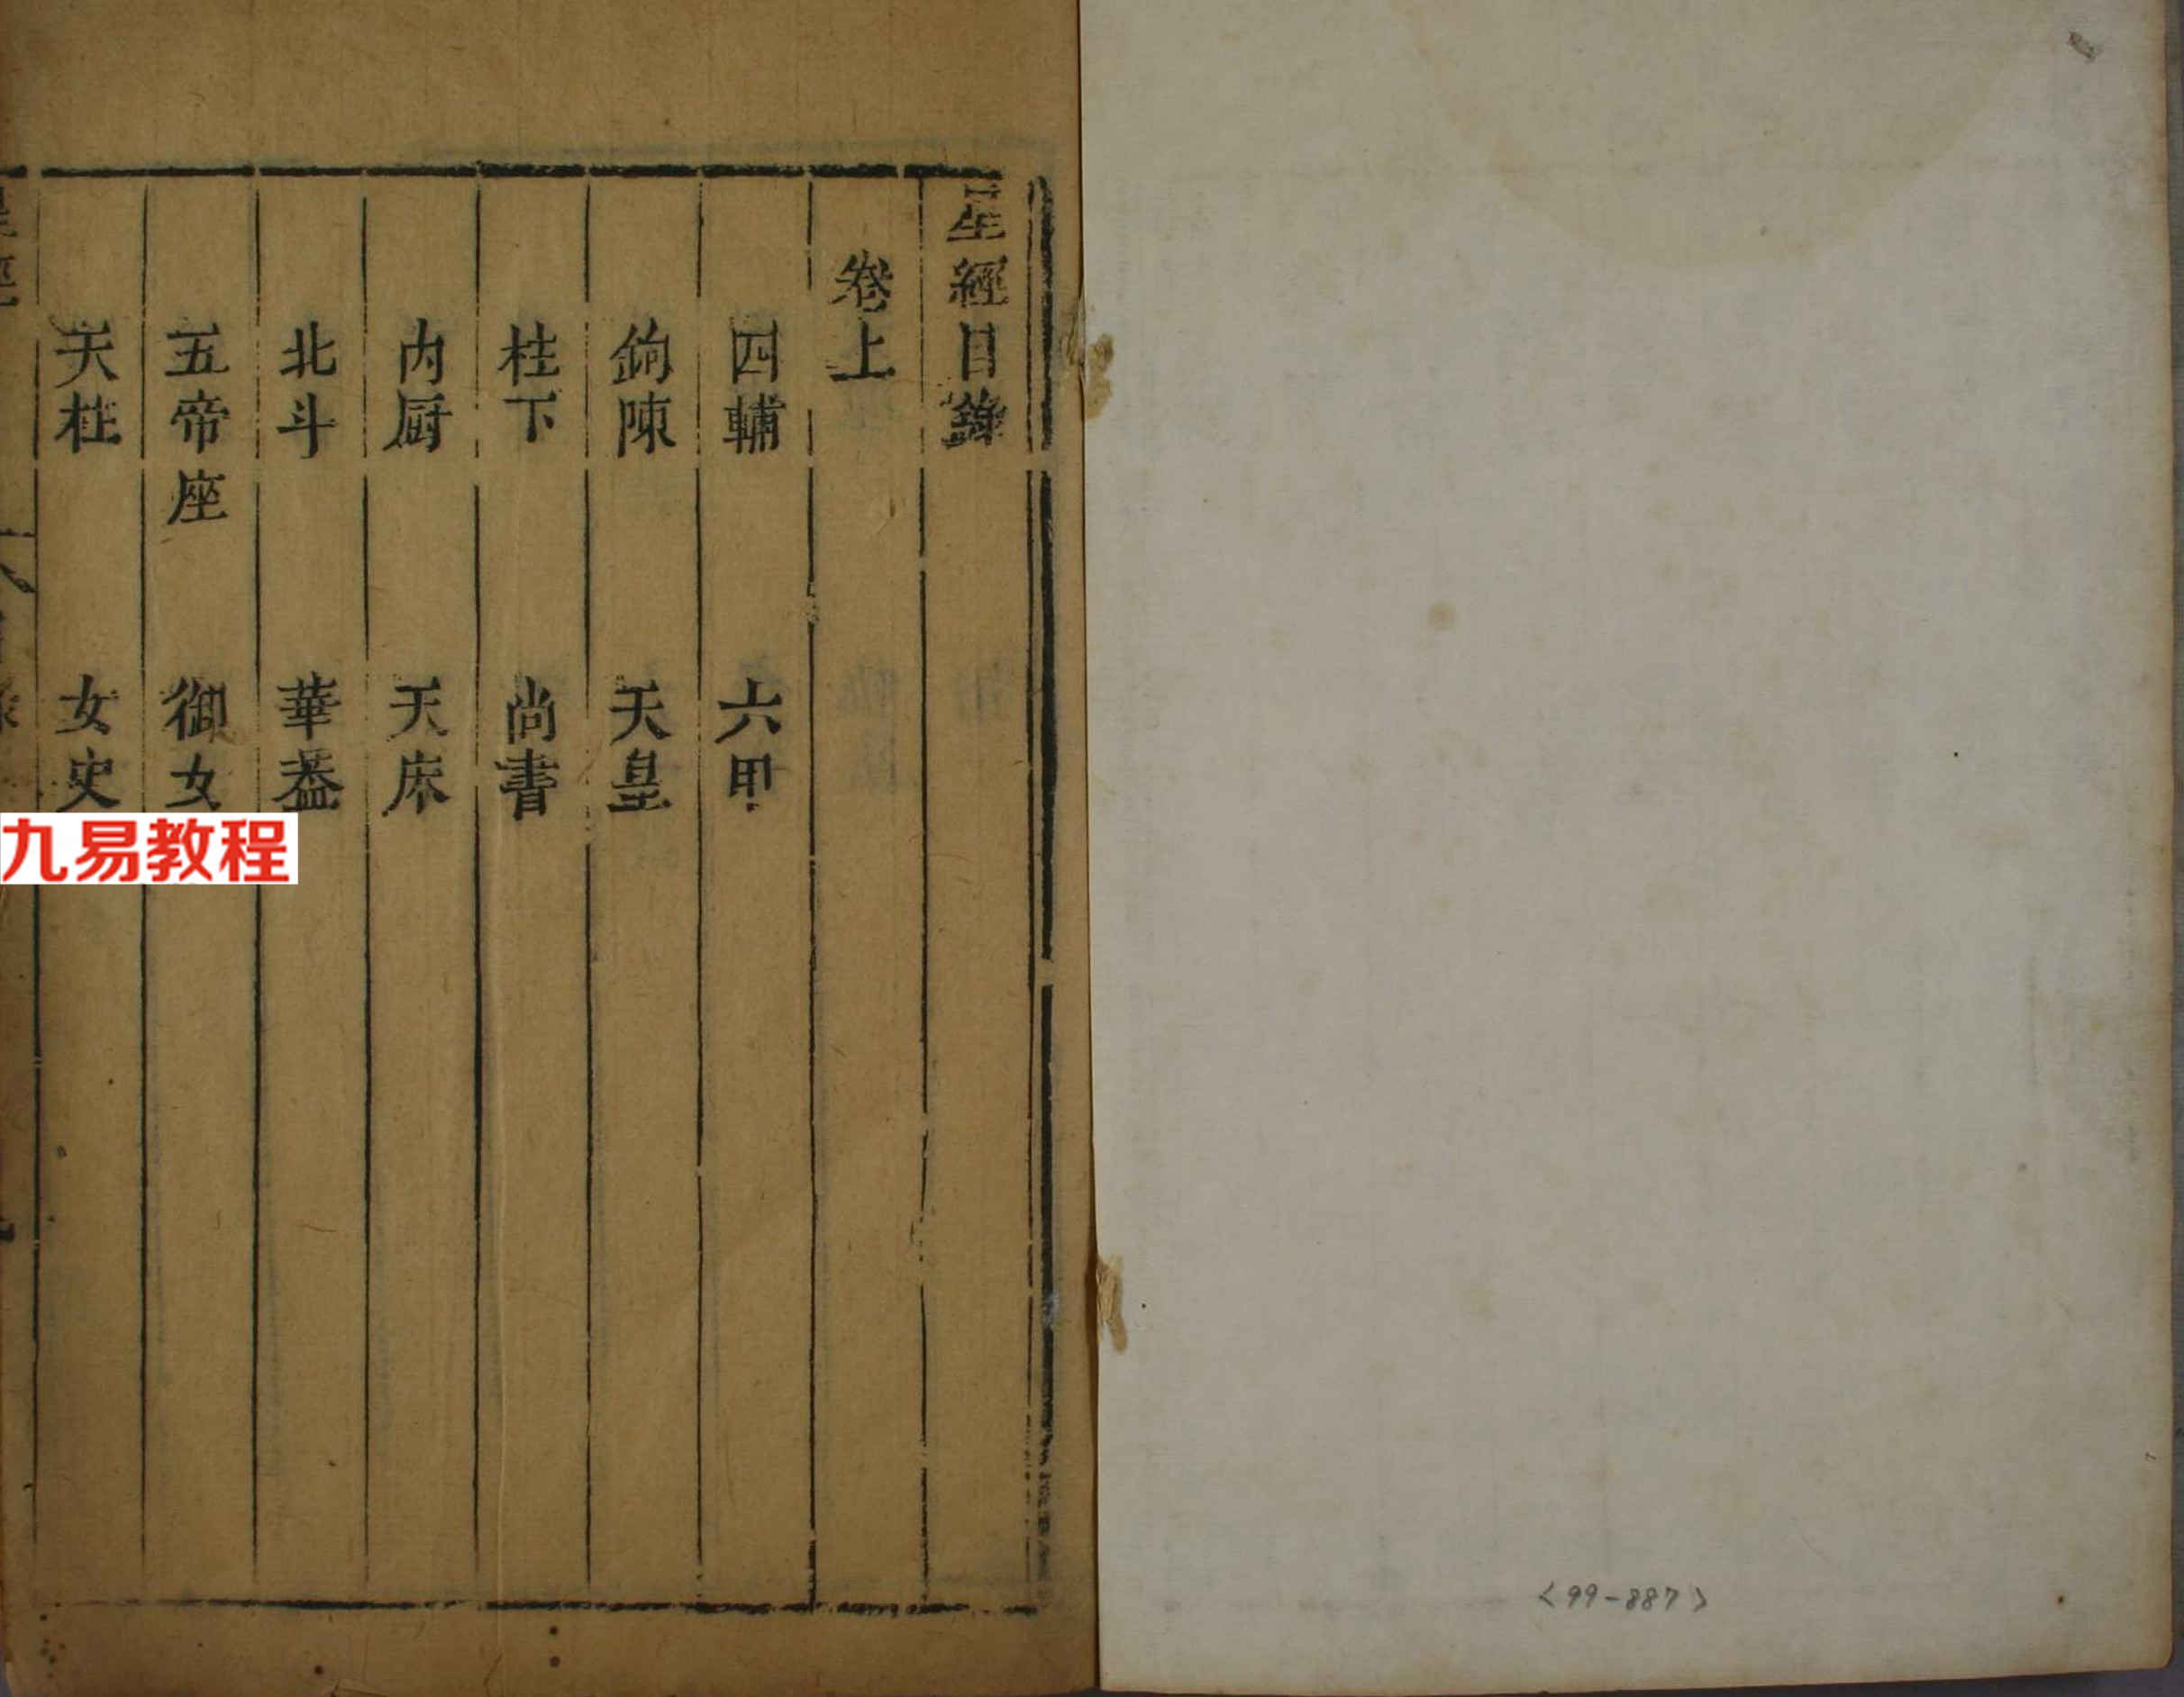 星經目錄
卷上
四輔 六甲
鉤陳 天皇
柱下 尚書
內厨 天床
北斗 華蓋
五帝座 御女
天柱 女史
九易教程
<99-887>